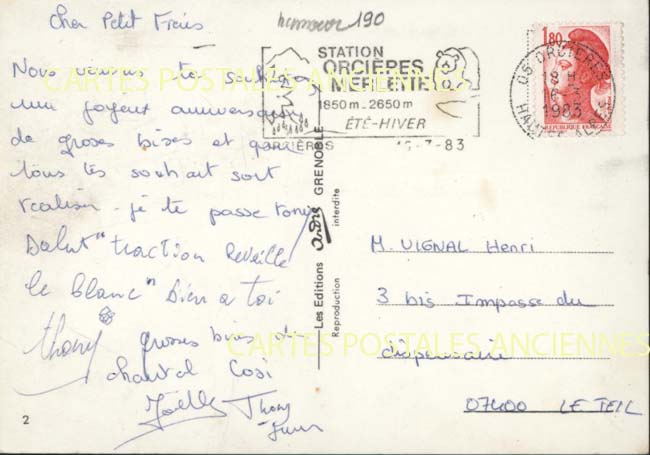 Cher Petit Frère
humour 190
Nous venons te souhaiter
un joyeux anniversaire
de groses bises et que
tous tés souhait sort
realiser. je te passe Tonis
Salut "traction Reveille
le blanc" bien a toi
thony groses bises de
chantal Cosi
Joëlle Thony
2
STATION
ORCIÈRES
MERLETTE
1850 m - 2650 m
ÉTÉ-HIVER
ORCIÈRES
-7-83
1,80
REPUBLIQUE FRANÇAISE
05 ORCIERES
18 H
1983
HAUTES ALPES
Les Editions André GRENOBLE
Reproduction interdite
M. VIGNAL Henri
3 bis Impasse du
dispensaire
07400 LE TEIL
CARTES POSTALES ANCIENNES
CARTES POSTALES ANCIENNES